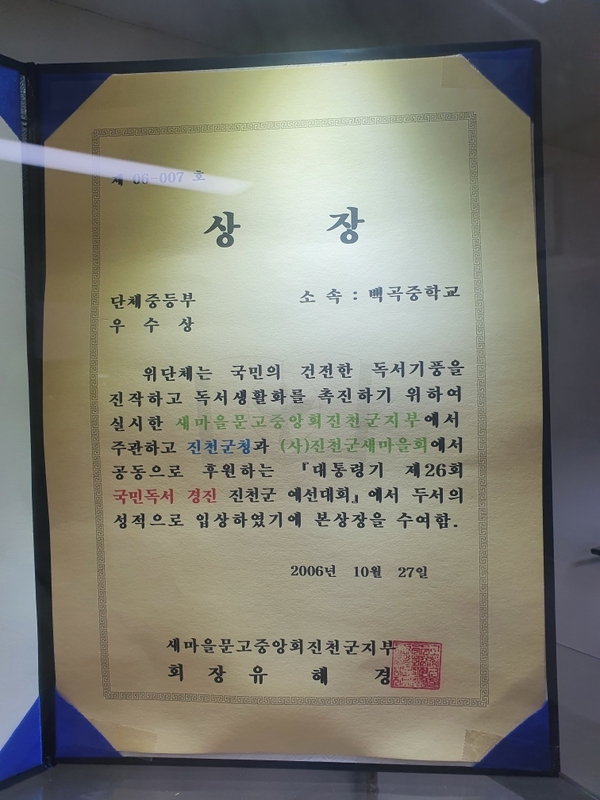 제 06-007 호
상 장
단체중등부 소 속 : 백곡중학교
우 수 상
위단체는 국민의 건전한 독서기풍을
진작하고 독서생활화를 촉진하기 위하여
실시한 새마을문고중앙회진천군지부에서
주관하고 진천군청과 (사)진천군새마을회에서
공동으로 후원하는 『대통령기 제26회
국민독서 경진 진천군 예선대회』에서 두서의
성적으로 입상하였기에 본상장을 수여함.
2006년 10월 27일
새마을문고중앙회진천군지부
회 장 유 혜 경